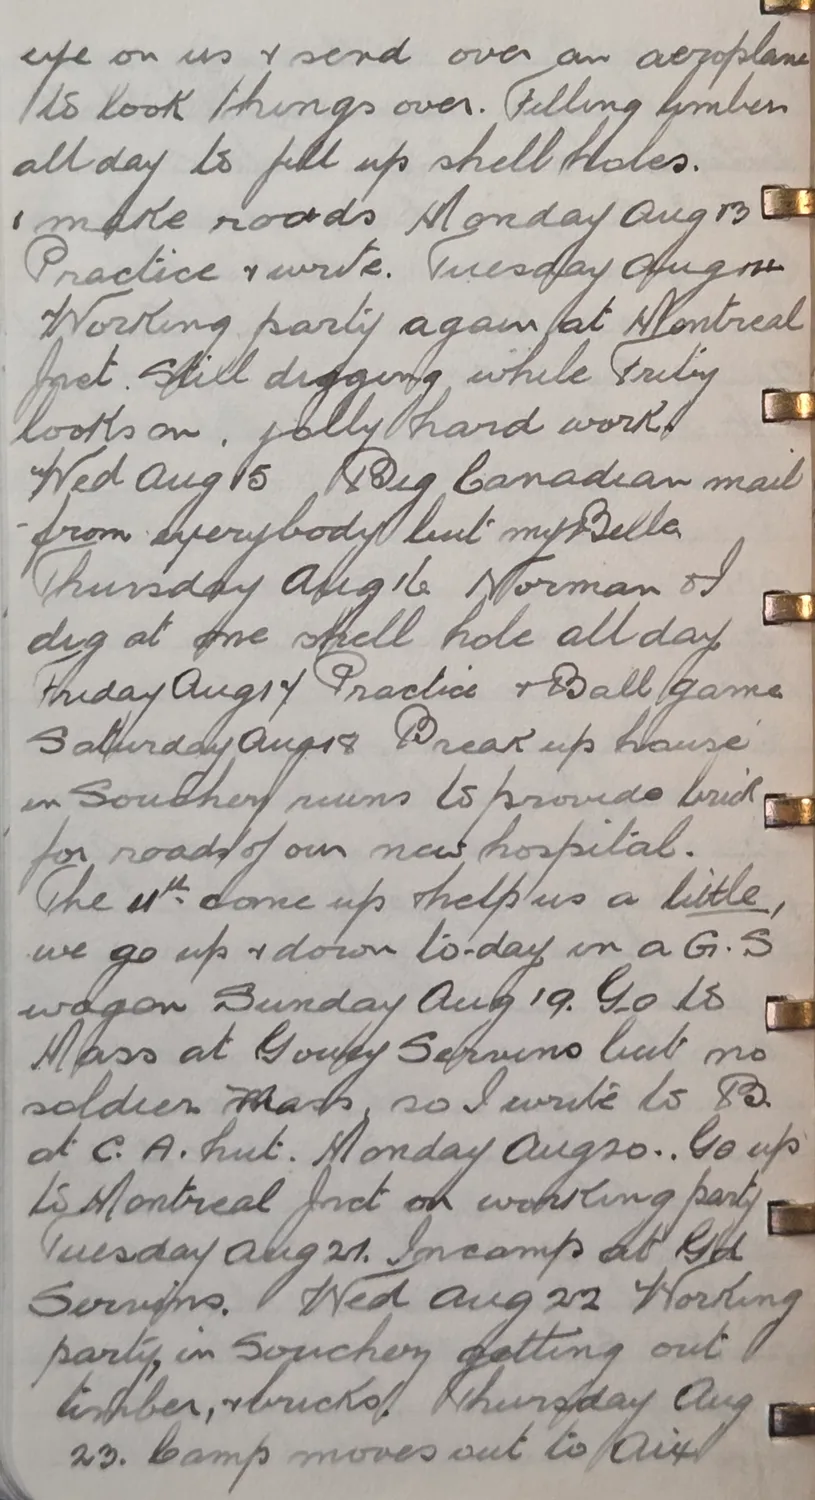 eye on us & send over an aeroplane
to look things over. Filling timbers
all day to fill up shell holes.
& make roads Monday Aug 13
Practice & write. Tuesday Aug 14
Working party again at Montreal
Jnct. Still digging while Fritzy
looks on, jolly hard work.
Wed Aug 15 Big Canadian mail
from everybody but my Bella
Thursday Aug 16 Norman & I
dig at one shell hole all day
Friday Aug 17 Practice & Ball game
Saturday Aug 18 Break up house
in Souchey ruins to provide brick
for roads of our new hospital.
The 11th come up & help us a little,
we go up & down to-day in a G.S
wagon Sunday Aug 19. Go to
Mass at Gouey Servins but no
soldier Mass, so I write to B.
at C. A. hut. Monday Aug 20.. Go up
to Montreal Jnct on working party
Tuesday Aug 21. In camp at Gd
Servins. Wed Aug 22 Working
party, in Souchey getting out
timber, & bricks. Thursday Aug
23. Camp moves out to Aix